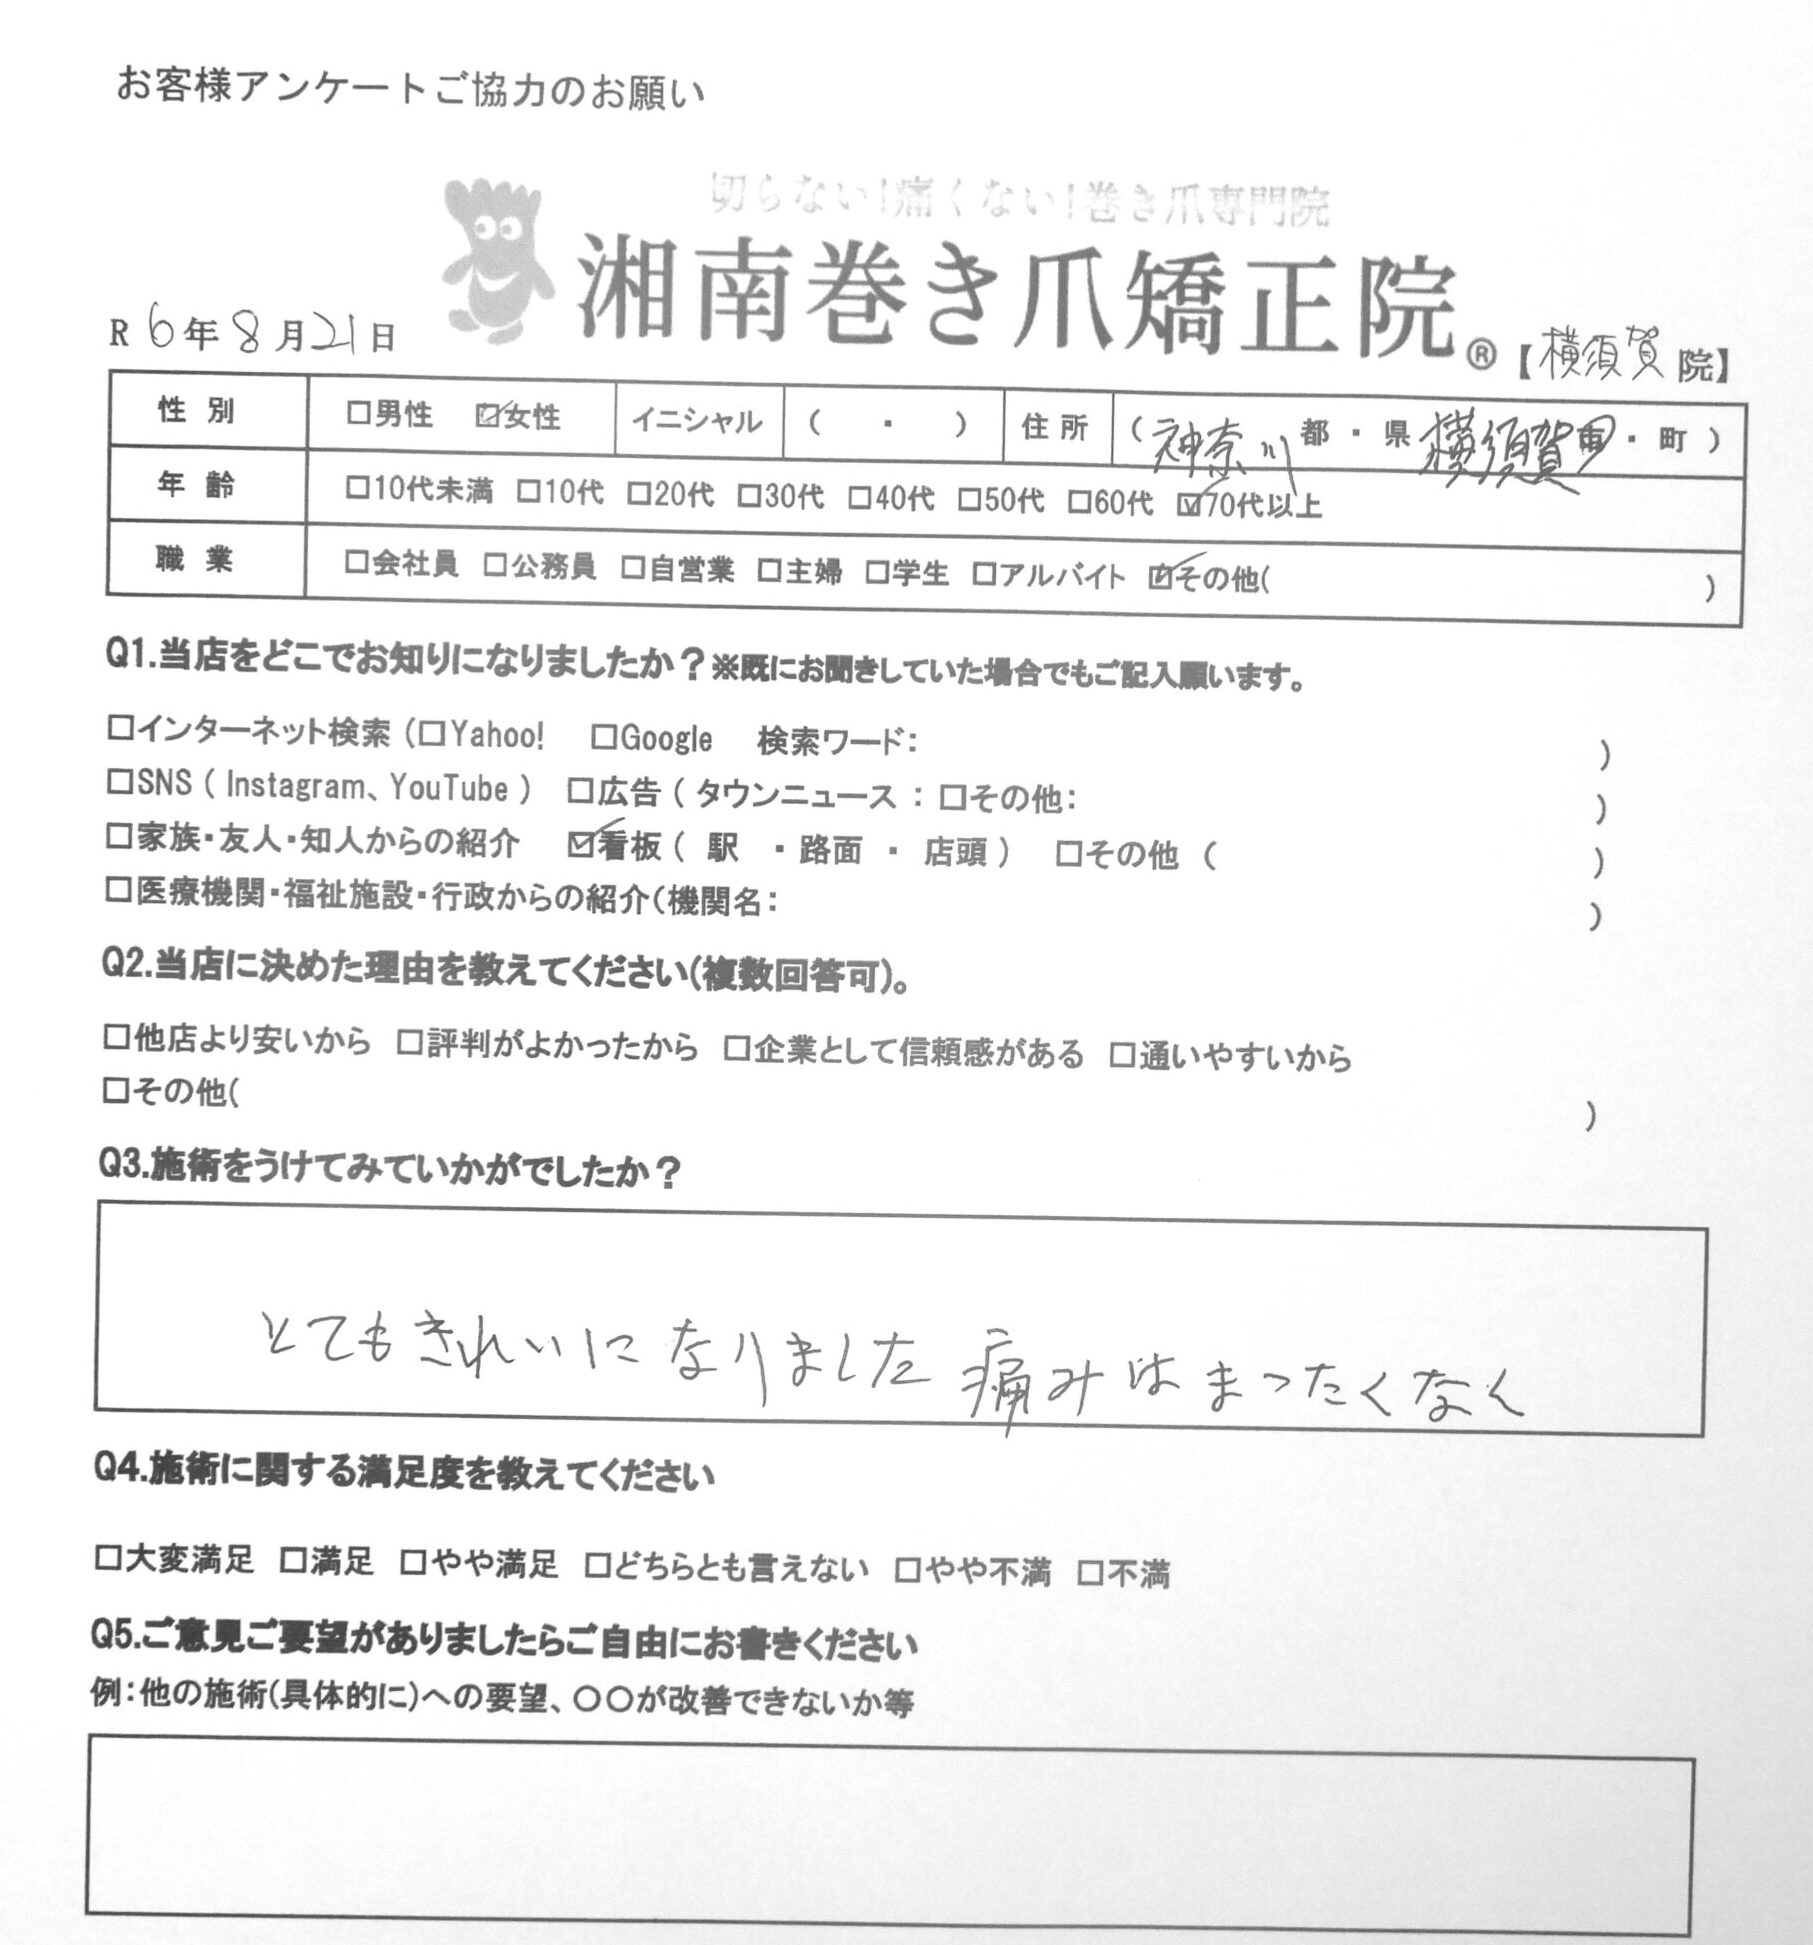 お客様アンケートご協力のお願い
切らない!痛くない!巻き爪専門院
湘南巻き爪矯正院®
R 6年 8月21日 【横須賀院】
性別 □男性 ☑女性 イニシャル ( ・ ) 住所 (神奈川 都・県 横須賀市・町)
年齢 □10代未満 □10代 □20代 □30代 □40代 □50代 □60代 ☑70代以上
職業 □会社員 □公務員 □自営業 □主婦 □学生 □アルバイト ☑その他( )
Q1.当店をどこでお知りになりましたか?※既にお聞きしていた場合でもご記入願います。
□インターネット検索 (□Yahoo! □Google 検索ワード: )
□SNS ( Instagram、YouTube ) □広告 ( タウンニュース : □その他: )
□家族・友人・知人からの紹介 ☑看板 ( 駅 ・路面 ・ 店頭 ) □その他 ( )
□医療機関・福祉施設・行政からの紹介(機関名: )
Q2.当店に決めた理由を教えてください(複数回答可)。
□他店より安いから □評判がよかったから □企業として信頼感がある □通いやすいから
□その他( )
Q3.施術をうけてみていかがでしたか?
とてもきれいになりました 痛みはまったくなく
Q4.施術に関する満足度を教えてください
□大変満足 □満足 □やや満足 □どちらとも言えない □やや不満 □不満
Q5.ご意見ご要望がありましたらご自由にお書きください
例:他の施術(具体的に)への要望、〇〇が改善できないか等